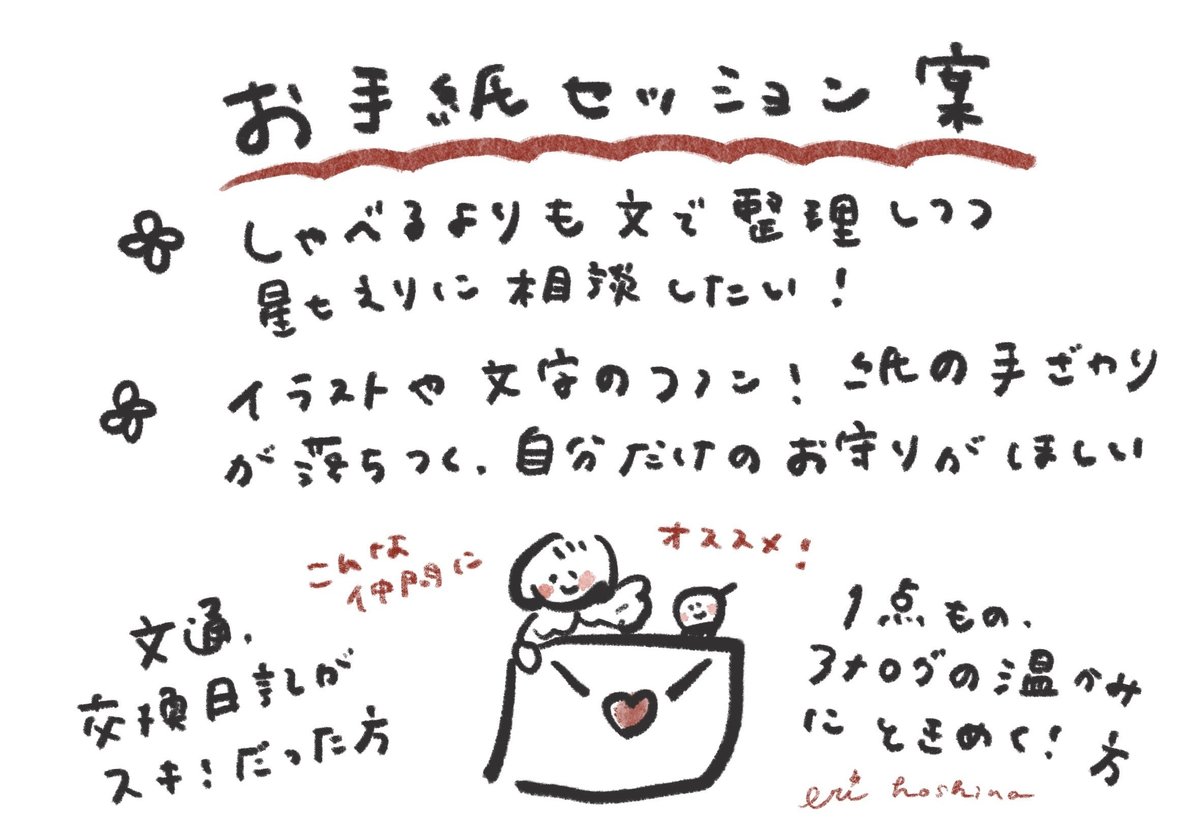 お手紙セッション案
しゃべるよりも文で整理しつつ
星もえりに相談したい!
イラストや文字のファン!紙の手ざわり
が落ちつく、自分だけのお守りがほしい
こんな仲間に
オススメ!
文通、
交換日記が
スキ!だった方
1点もの、
アナログの温かみ
にときめく!方
eri hoshina